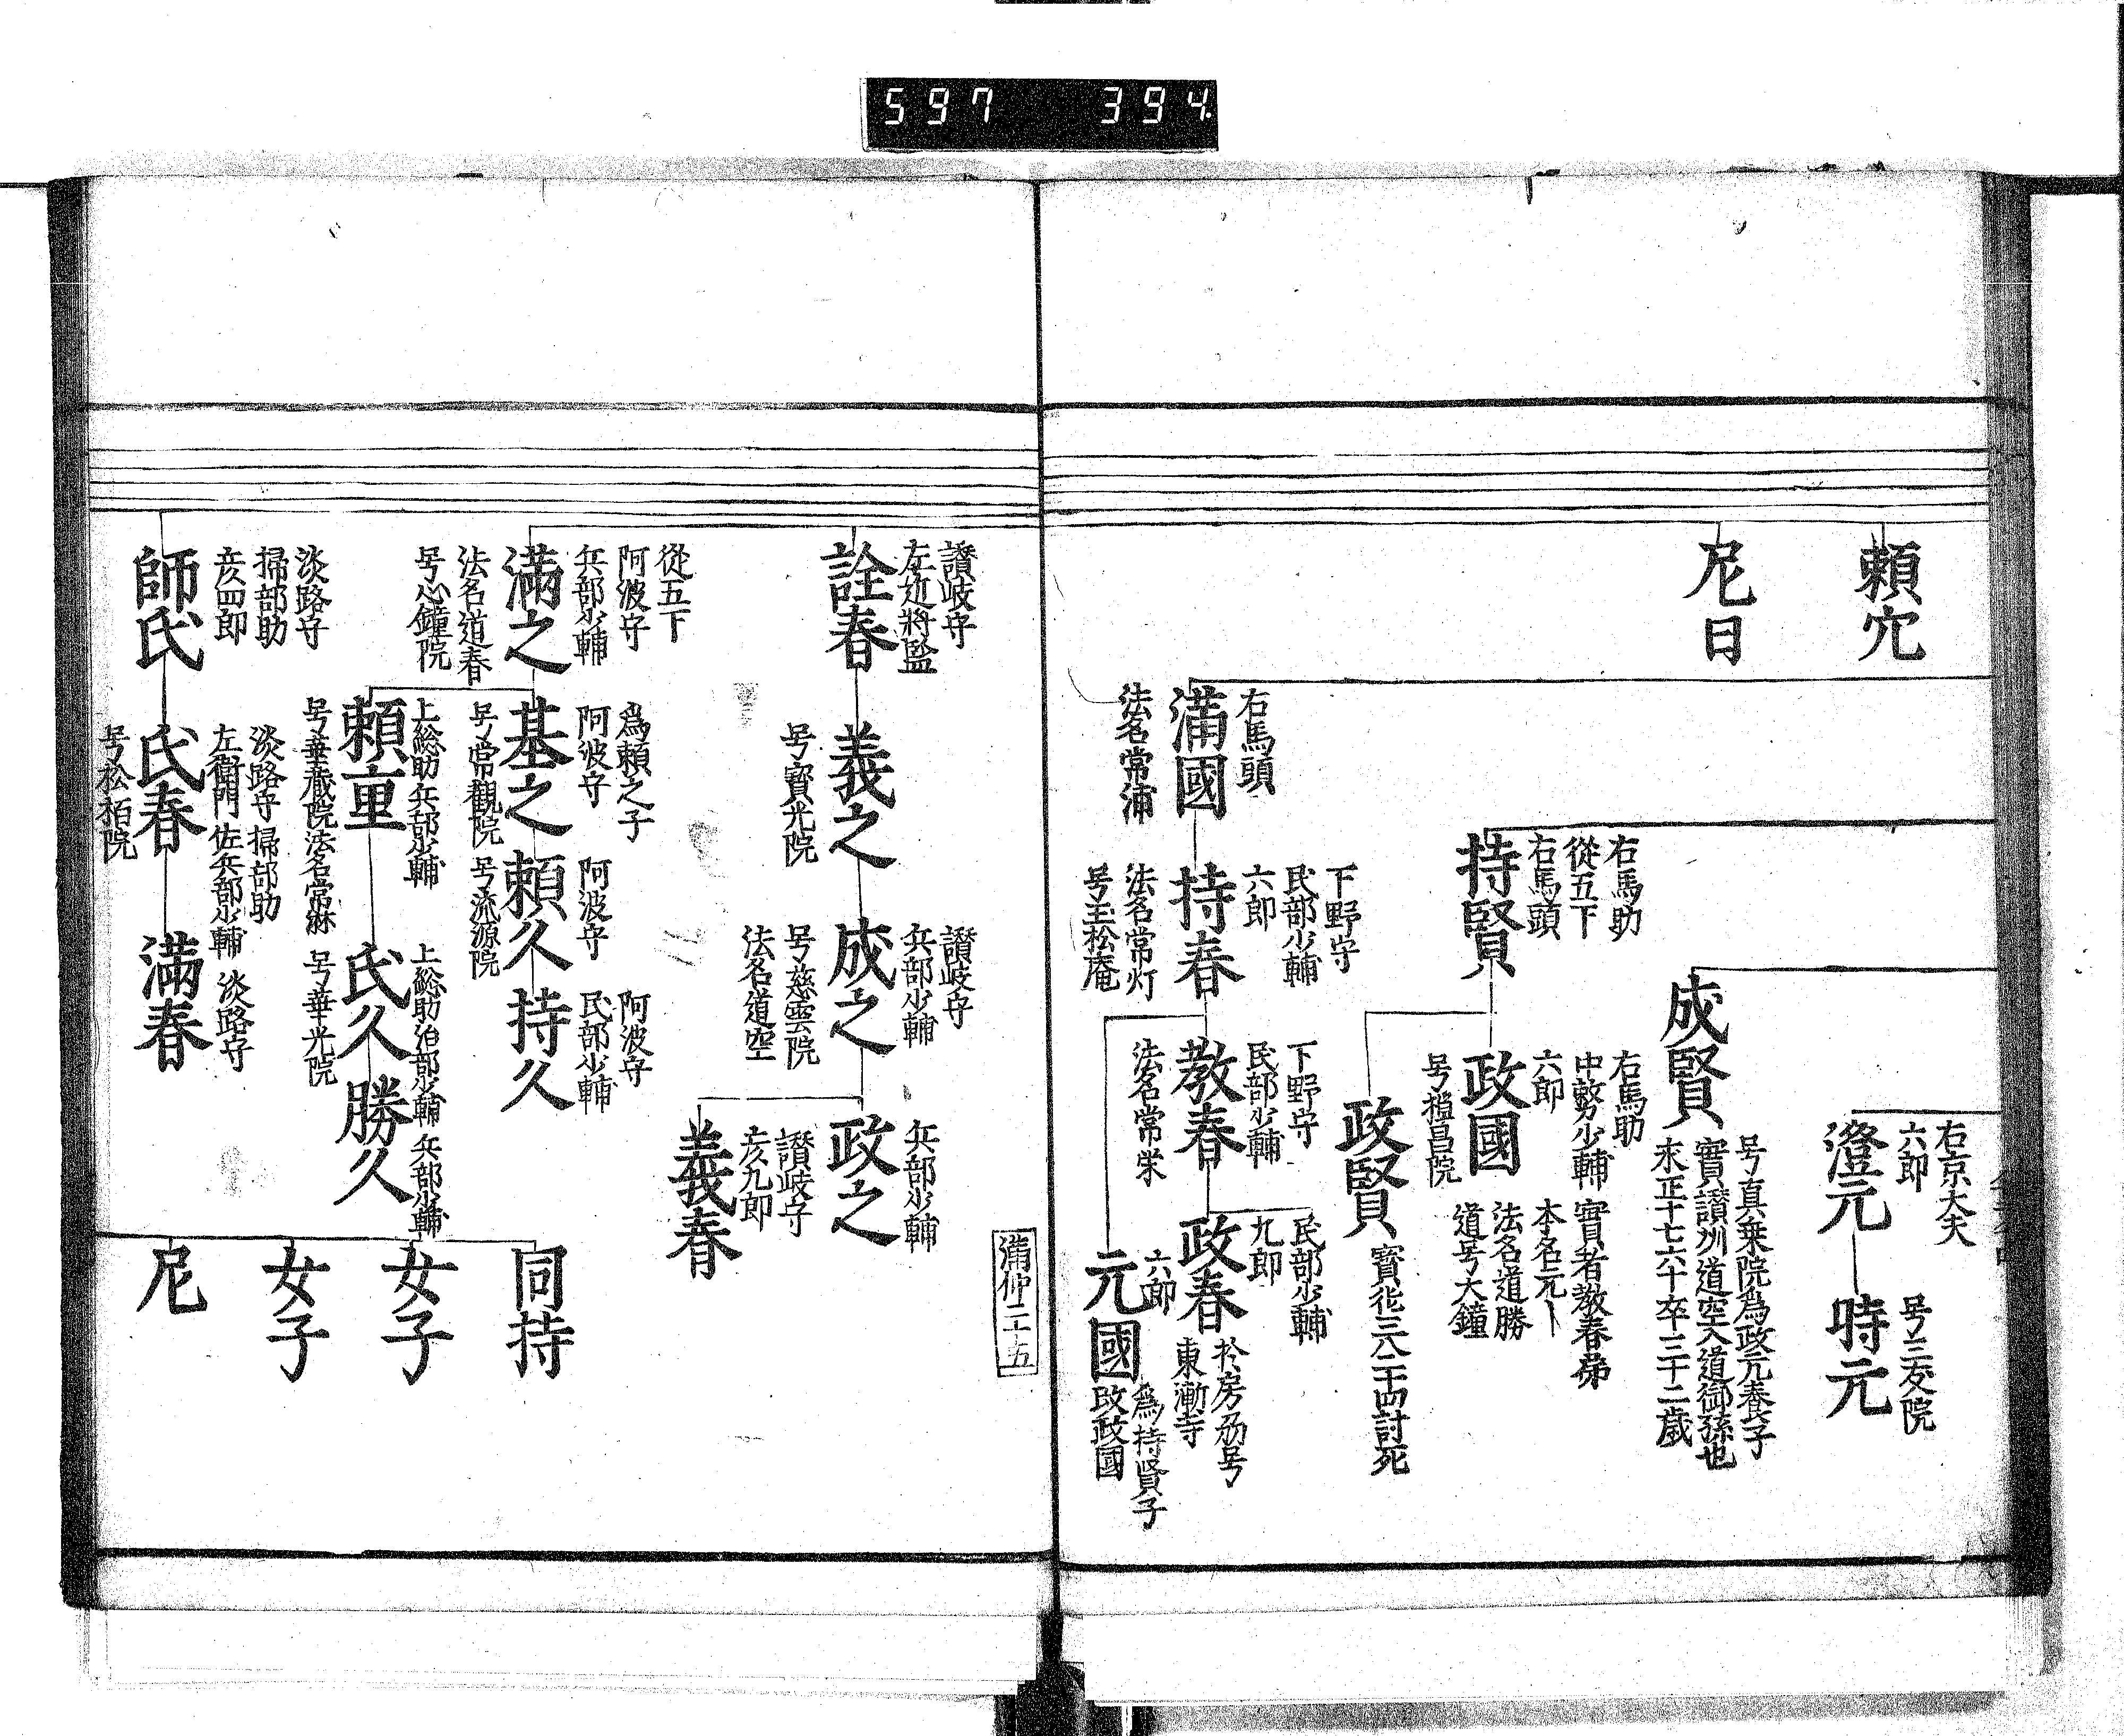 597 394.
右京大夫
六郎
澄元
号三友院
時元
頼宂
尼日
成賢
号真乗院為政元養子
實讃州道空入道御孫也
永正十七六十卒三十二歳
右馬助
從五下
右馬頭
持賢
右馬助
中務少輔
六郎
政國
号
昌院
實者教春弟
本名元〡
法名道勝
道号大鐘
政賢
寳徳三八二十四討死
右馬頭
滿國
法名常浦
下野守
民部少輔
六郎
持春
法名常灯
号玉松庵
下野守
民部少輔
教春
法名常栄
民部少輔
九郎
政春
於房
号
東漸寺
六郎
元國
為持賢子
改政國
滿仲二ノ五
讃岐守
左近將監
詮春
義之
号寳光院
讃岐守
兵部少輔
成之
号慈雲院
法名道空
兵部少輔
政之
讃岐守
彦九郎
義春
從五下
阿波守
兵部少輔
滿之
法名道春
号心鐘院
為頼之子
阿波守
基之
号常觀院
阿波守
頼久
号流源院
阿波守
民部少輔
持久
上総助兵部少輔
頼重
号華蔵院法名常麻
上総助治部少輔
氏久
号華光院
兵部少輔
勝久
淡路守
掃部助
彦四郎
師氏
淡路守掃部助
左衛門佐兵部少輔
氏春
号松柏院
淡路守
滿春
同持
女子
女子
尼